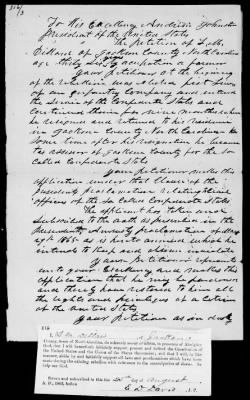 To His Excellency Andrew Johnson
President of the United States
The Petition of J. M.
Dillard of Jackson County North Carolina
age thirty six years occupation a farmer
Your Petitioner at the beginning
of the rebellion was elected
of an infantry company and entered
the Service of the Confederate States and
continued therein for nine months when
he resigned and returned to his residence
in Jackson County North Carolina &
Some time after his resignation he became
tax assessor of Jackson County for the So
Called Confederate States
Your petitioner makes this
application under that Clause of the
President's proclamation relating to
officers of the So Called Confederate States
The applicant has taken and
subscribed to the oath as presented in the
President's Amnesty proclamation of May
29th 1865 as is hereto annexed which he
intends to keep and observe inviolate
Your Petitioner
unto your Excellency and makes this
application that he may be pardoned
and thereby have restored to him all
the rights and privileges of a Citizen
of the United States
Your Petitioner as in duty
County, State of North Carolina, do solemnly swear or affirm, in presence of Almighty
God, that I will henceforth faithfully support, protect and defend the Constitution of
the United States and the Union of the States thereunder; and that I will, in like
manner, abide by and faithfully support all laws and proclamations which have been
made during the existing rebellion with reference to the emancipation of slaves. So
help me God.
Sworn and subscribed to this the day August
A. D., 1865, before